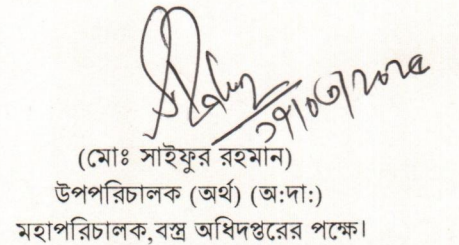 (মোঃ সাইফুর রহমান)
উপপরিচালক (অর্থ) (অ:দা:)
মহাপরিচালক,বস্ত্র অধিদপ্তরের পক্ষে।